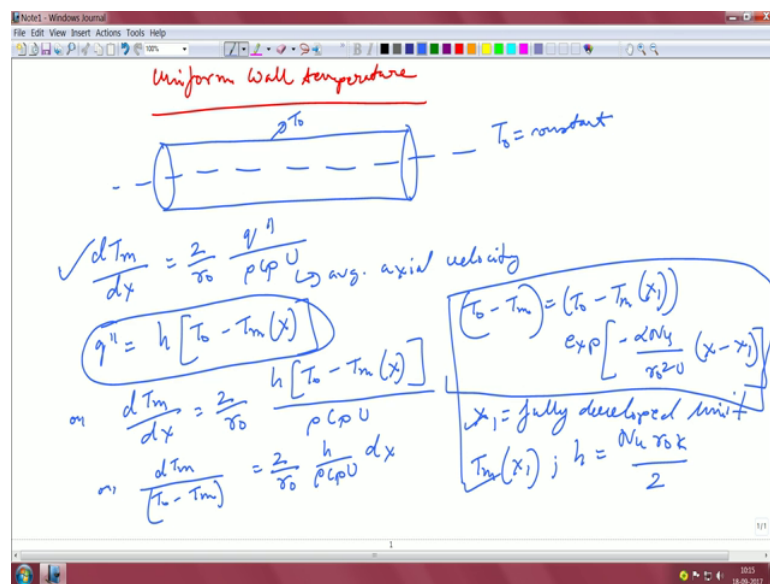 Note1 - Windows Journal
File Edit View Insert Actions Tools Help
100%
Uniform Wall temperature
T₀
T₀ = constant
✓ dTm/dx = 2/r₀ q"/ρCpU ↳ avg. axial velocity
q" = h[T₀ - Tm(x)]
or dTm/dx = 2/r₀ h[T₀ - Tm(x)]/ρCpU
or, dTm/(T₀ - Tm) = 2/r₀ h/ρCpU dx
(T₀ - Tm) = (T₀ - Tm(x₁))
exp[-αNu/r₀²U (x - x₁)]
x₁ = fully developed limit
Tm(x₁) ; h = Nu r₀ k/2
1/1
1
10:15
18-09-2017